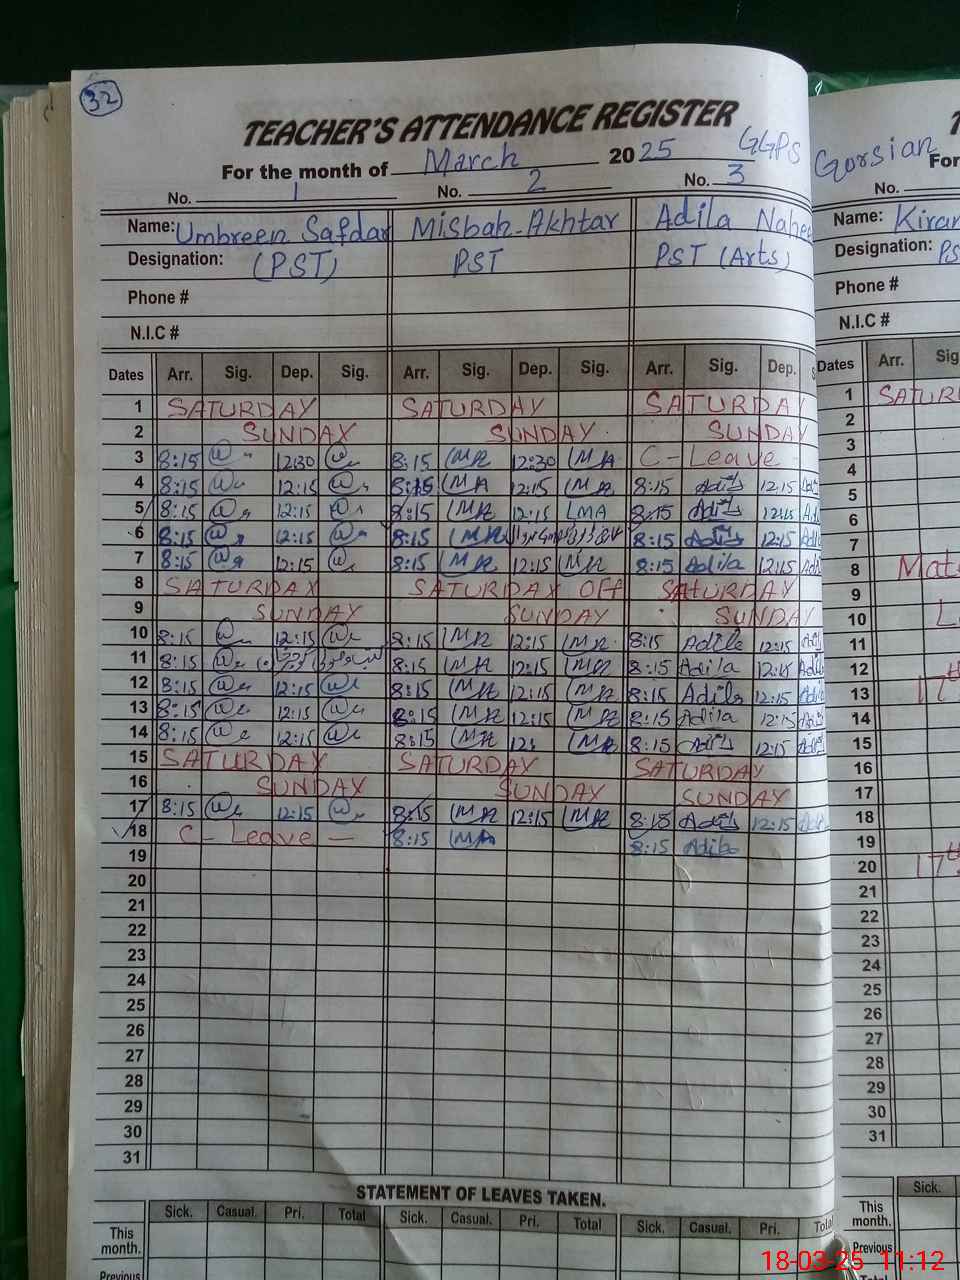 32
TEACHER'S ATTENDANCE REGISTER
For the month of March 2025 GGPS Gorsian
No. 1 No. 2 No. 3
Name: Umbreen Safdar Misbah Akhtar Adila
Designation: (PST) PST PST (Arts)
Phone #
N.I.C #
Dates Arr. Sig. Dep. Sig. Arr. Sig. Dep. Sig. Arr. Sig. Dep.
1 SATURDAY SATURDAY SATURDAY
2 SUNDAY SUNDAY SUNDAY
3 8:15 12:30 8:15 MA 12:30 MA C-Leave
4 8:15 12:15 8:15 MA 12:15 MA 8:15 Adila 12:15
5 8:15 12:15 8:15 MA 12:15 MA 8:15 Adila 12:15
6 8:15 12:15 8:15 MA 8:15 Adila 12:15
7 8:15 12:15 8:15 MA 12:15 MA 8:15 Adila 12:15
8 SATURDAY SATURDAY OFF SATURDAY
9 SUNDAY SUNDAY SUNDAY
10 8:15 12:15 8:15 MA 12:15 MA 8:15 Adila 12:15
11 8:15 8:15 MA 12:15 MA 8:15 Adila 12:15
12 8:15 12:15 8:15 MA 12:15 MA 8:15 Adila 12:15
13 8:15 12:15 8:15 MA 12:15 MA 8:15 Adila 12:15
14 8:15 12:15 8:15 MA 12: MA 8:15 Adila 12:15
15 SATURDAY SATURDAY SATURDAY
16 SUNDAY SUNDAY SUNDAY
17 8:15 12:15 8:15 MA 12:15 MA 8:15 Adila 12:15
18 C-Leave — 8:15 MA 8:15 Adila
19
20
21
22
23
24
25
26
27
28
29
30
31
STATEMENT OF LEAVES TAKEN.
Sick. Casual. Pri. Total Sick. Casual. Pri. Total Sick. Casual. Pri. Total
This month.
Previous
For
No.
Name: Kiran
Designation:
Phone #
N.I.C #
Dates Arr.
1
2
3
4
5
6
7
8
9
10
11
12
13 17th
14
15
16
17
18
19
20 17th
21
22
23
24
25
26
27
28
29
30
31
Sick.
This month.
Previous
18-03-25 11:12